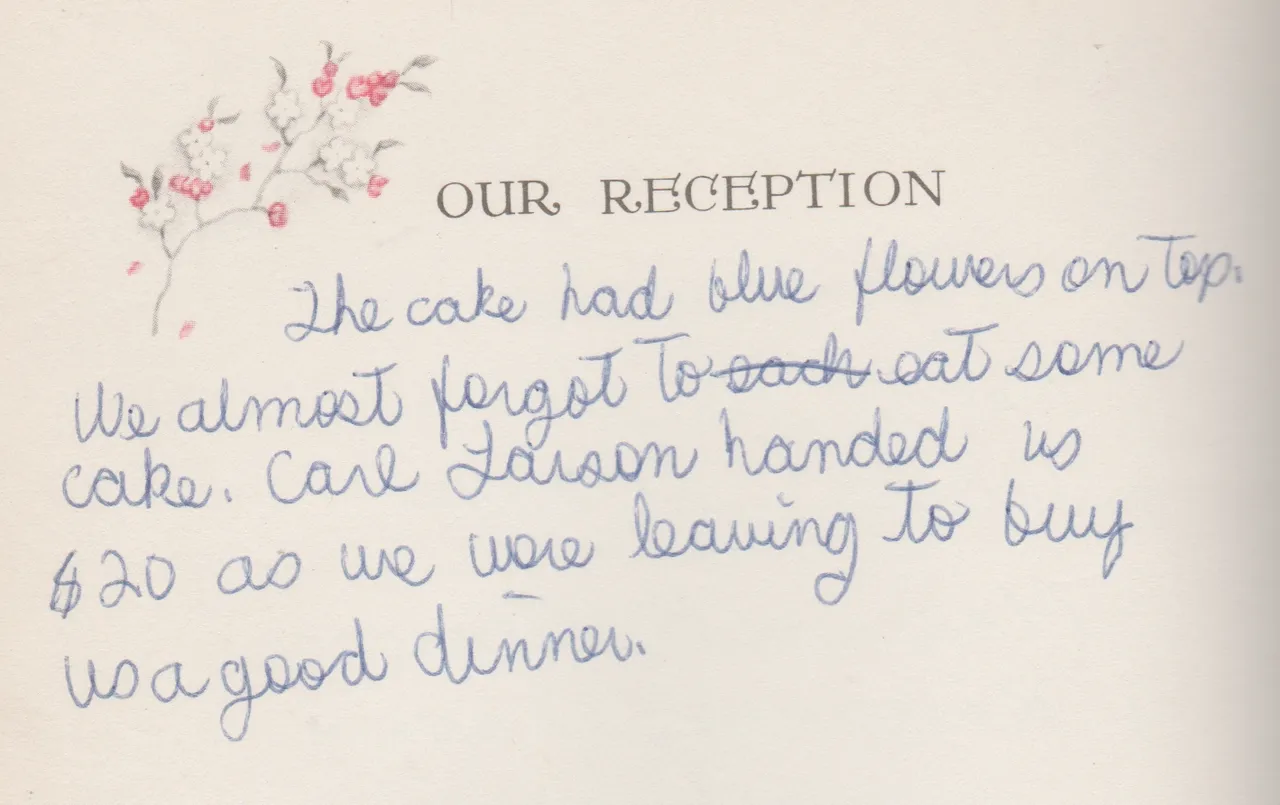 OUR RECEPTION
The cake had blue flowers on top.
We almost forgot to ~~each~~ eat some
cake. Carl Larson handed us
$20 as we were leaving to buy
us a good dinner.